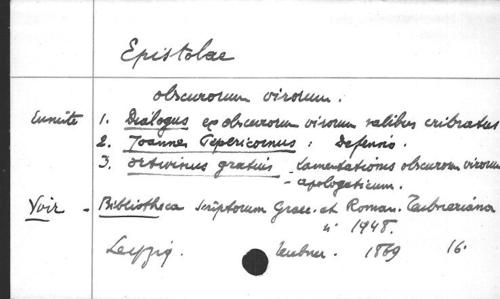 Epistolae
obscurorum virorum.
Ensuite 1. Dialogus ex obscurorum virorum salibus cribratus
2. Joannes Pepericornus : Defensio.
3. Ortwinus gratius - Lamentationes obscurorum virorum
- apologeticum.
Voir - Bibliotheca scriptorum Graec. et Roman. Teubneriana
n° 1948.
Leipzig. Teubner. 1869 16.